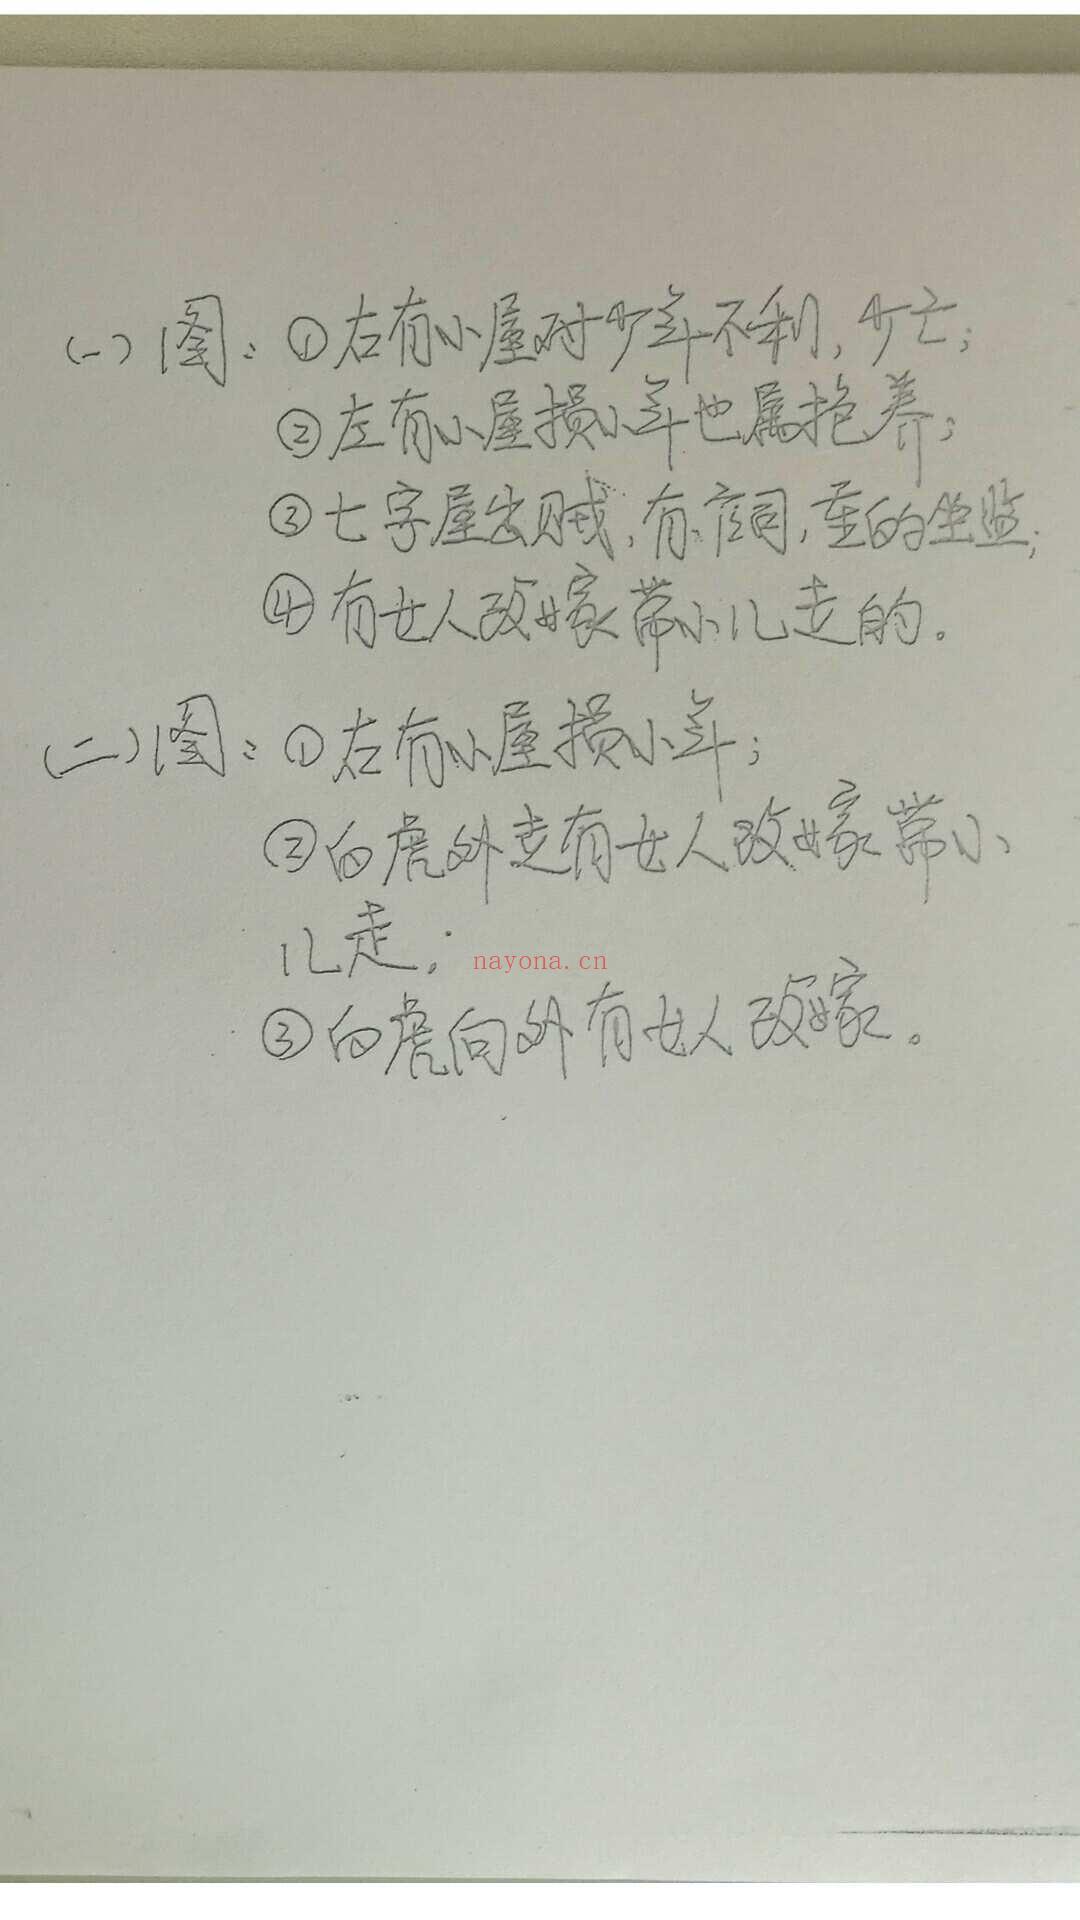 (一)图：①右有小屋对少年不利，少亡；
②左有小屋损小年也属抱养；
③七字屋出贼，有官司，重的坐监；
④有女人改嫁带小儿走的。
(二)图：①左有小屋损小年；
②白虎外走有女人改嫁带小
儿走；
nayona.cn
③白虎向外有女人改嫁。